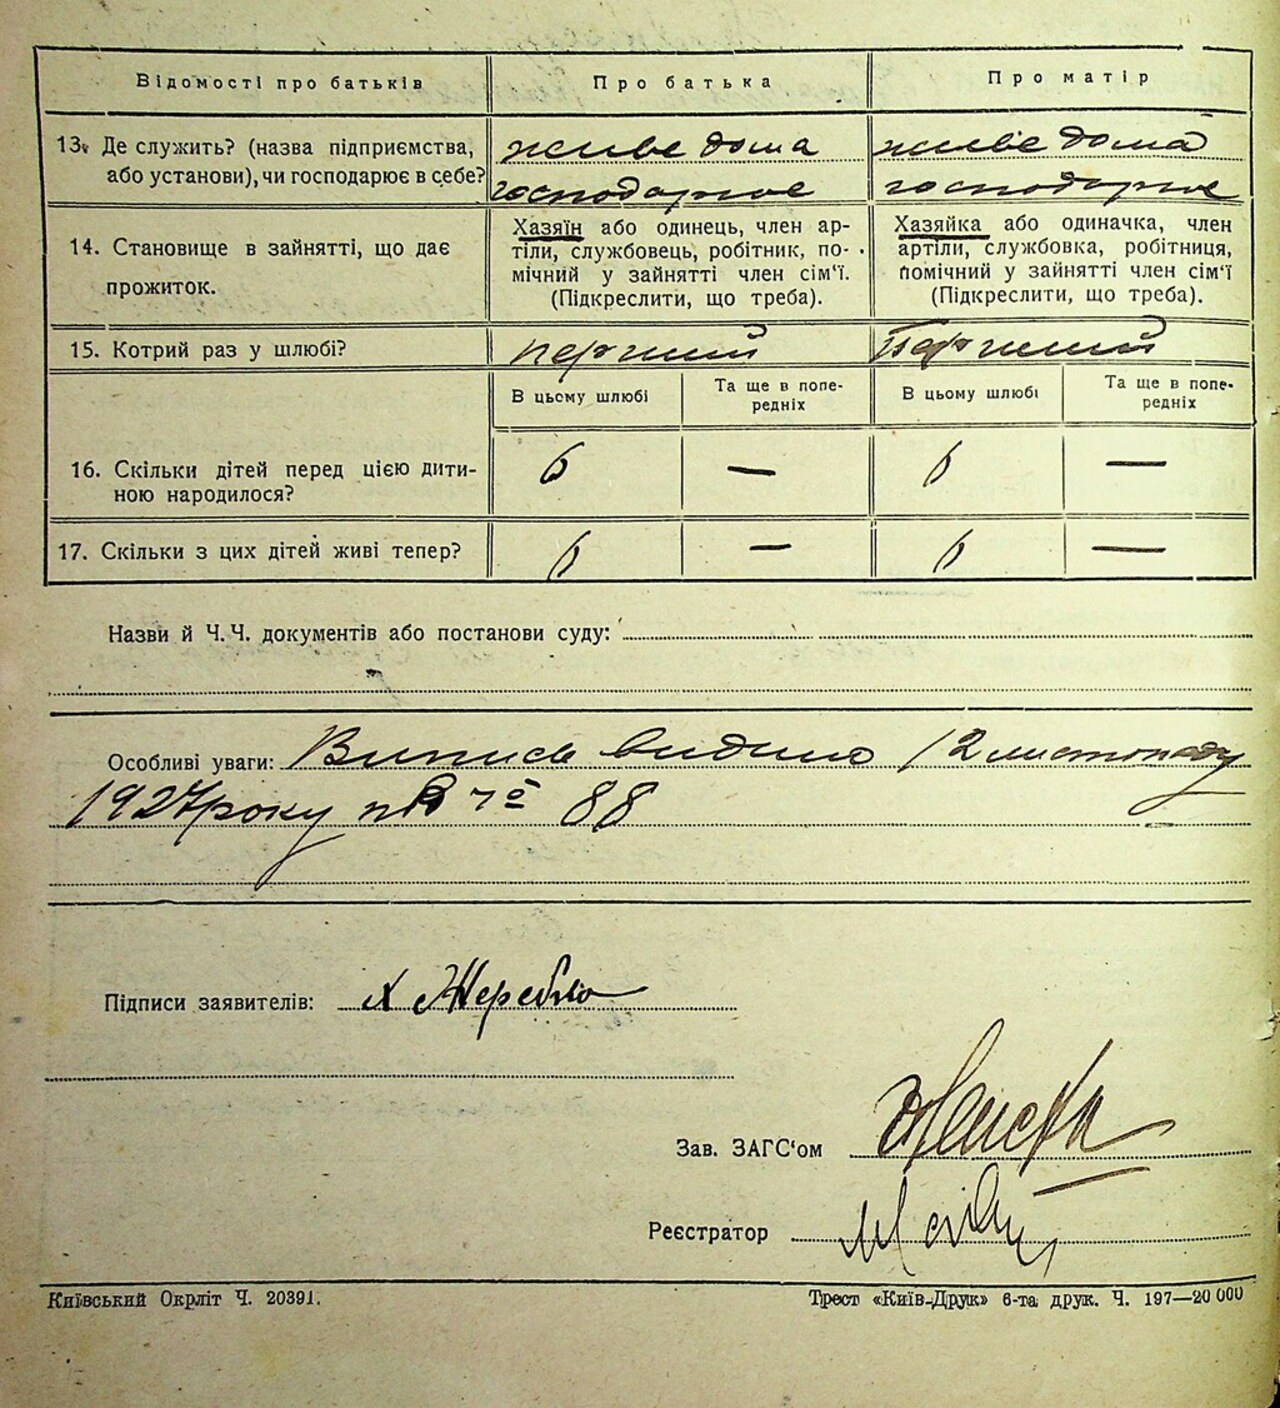 Відомості про батьків
Про батька
Про матір
13. Де служить? (назва підприємства,
або установи), чи господарює в себе?
живе дома
господарює
живе дома
господарює
14. Становище в зайнятті, що дає
прожиток.
Хазяїн або одинець, член ар-
тіли, службовець, робітник, по-
мічний у зайнятті член сім'ї.
(Підкреслити, що треба).
Хазяйка або одиначка, член
артіли, службовка, робітниця,
помічний у зайнятті член сім'ї
(Підкреслити, що треба).
15. Котрий раз у шлюбі?
перший
Перший
В цьому шлюбі
Та ще в попе-
редніх
В цьому шлюбі
Та ще в попе-
редніх
16. Скільки дітей перед цією дити-
ною народилося?
6 — 6 —
17. Скільки з цих дітей живі тепер?
6 — 6 —
Назви й Ч. Ч. документів або постанови суду:
Особливі уваги: Випись видано 12 листопаду
1927 року 88
Підписи заявителів: Х Жеребло
Зав. ЗАГС'ом
Реєстратор
Київський Окрліт Ч. 20391.
Трест «Київ-Друк» 6-та друк. Ч. 197—20 000